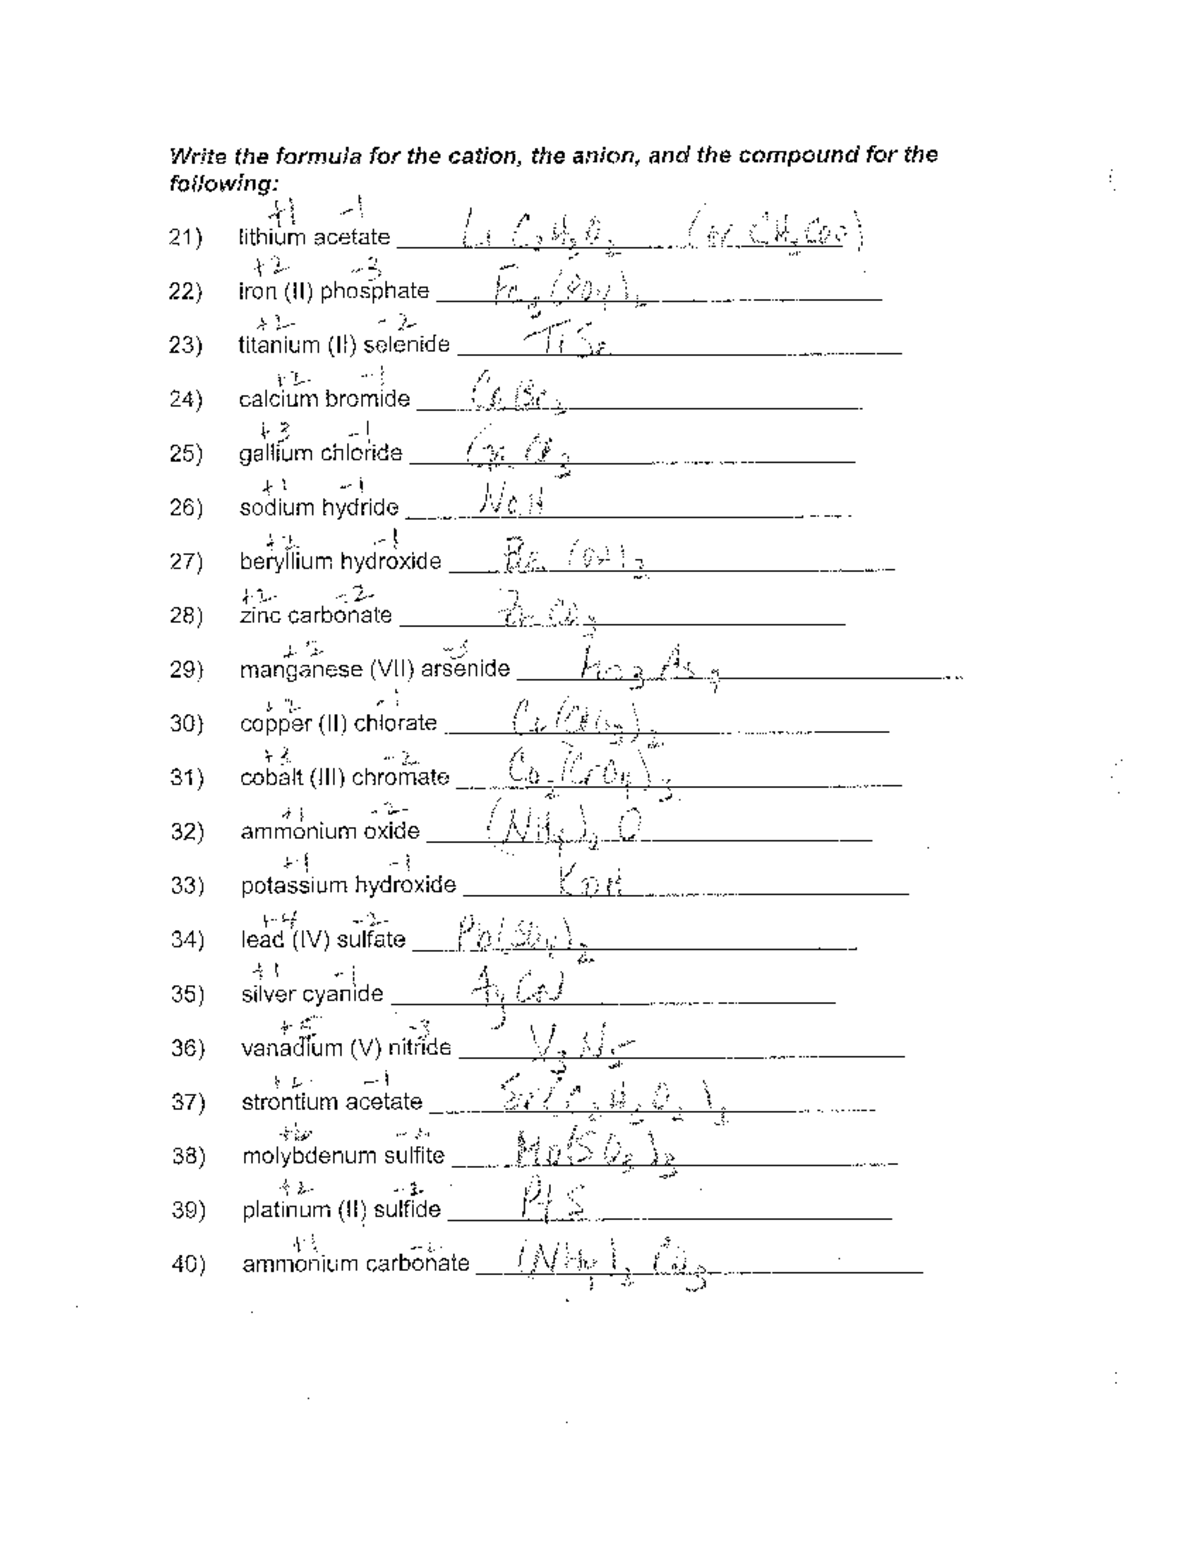 Write the formula for the cation, the anion, and the compound for the
following:
+1 -1
21) lithium acetate Li C2H3O2 (or CH3COO)
+2 -3
22) iron (II) phosphate Fe3(PO4)2
+2 -2
23) titanium (II) selenide TiSe
+2 -1
24) calcium bromide CaBr2
+3 -1
25) gallium chloride GaCl3
+1 -1
26) sodium hydride NaH
+2 -1
27) beryllium hydroxide Be(OH)2
+2 -2
28) zinc carbonate ZnCO3
-3
29) manganese (VII) arsenide As7
+2 -1
30) copper (II) chlorate Cu(ClO3)2
+3 -2
31) cobalt (III) chromate Co2(CrO4)3
+1 -2
32) ammonium oxide (NH4)2O
+1 -1
33) potassium hydroxide KOH
+4 -2
34) lead (IV) sulfate Pb(SO4)2
+1 -1
35) silver cyanide AgCN
+5 -3
36) vanadium (V) nitride V3N5
+2 -1
37) strontium acetate Sr(C2H3O2)2
38) molybdenum sulfite Mo(SO3)3
+2 -2
39) platinum (II) sulfide PtS
+1
40) ammonium carbonate (NH4)2CO3